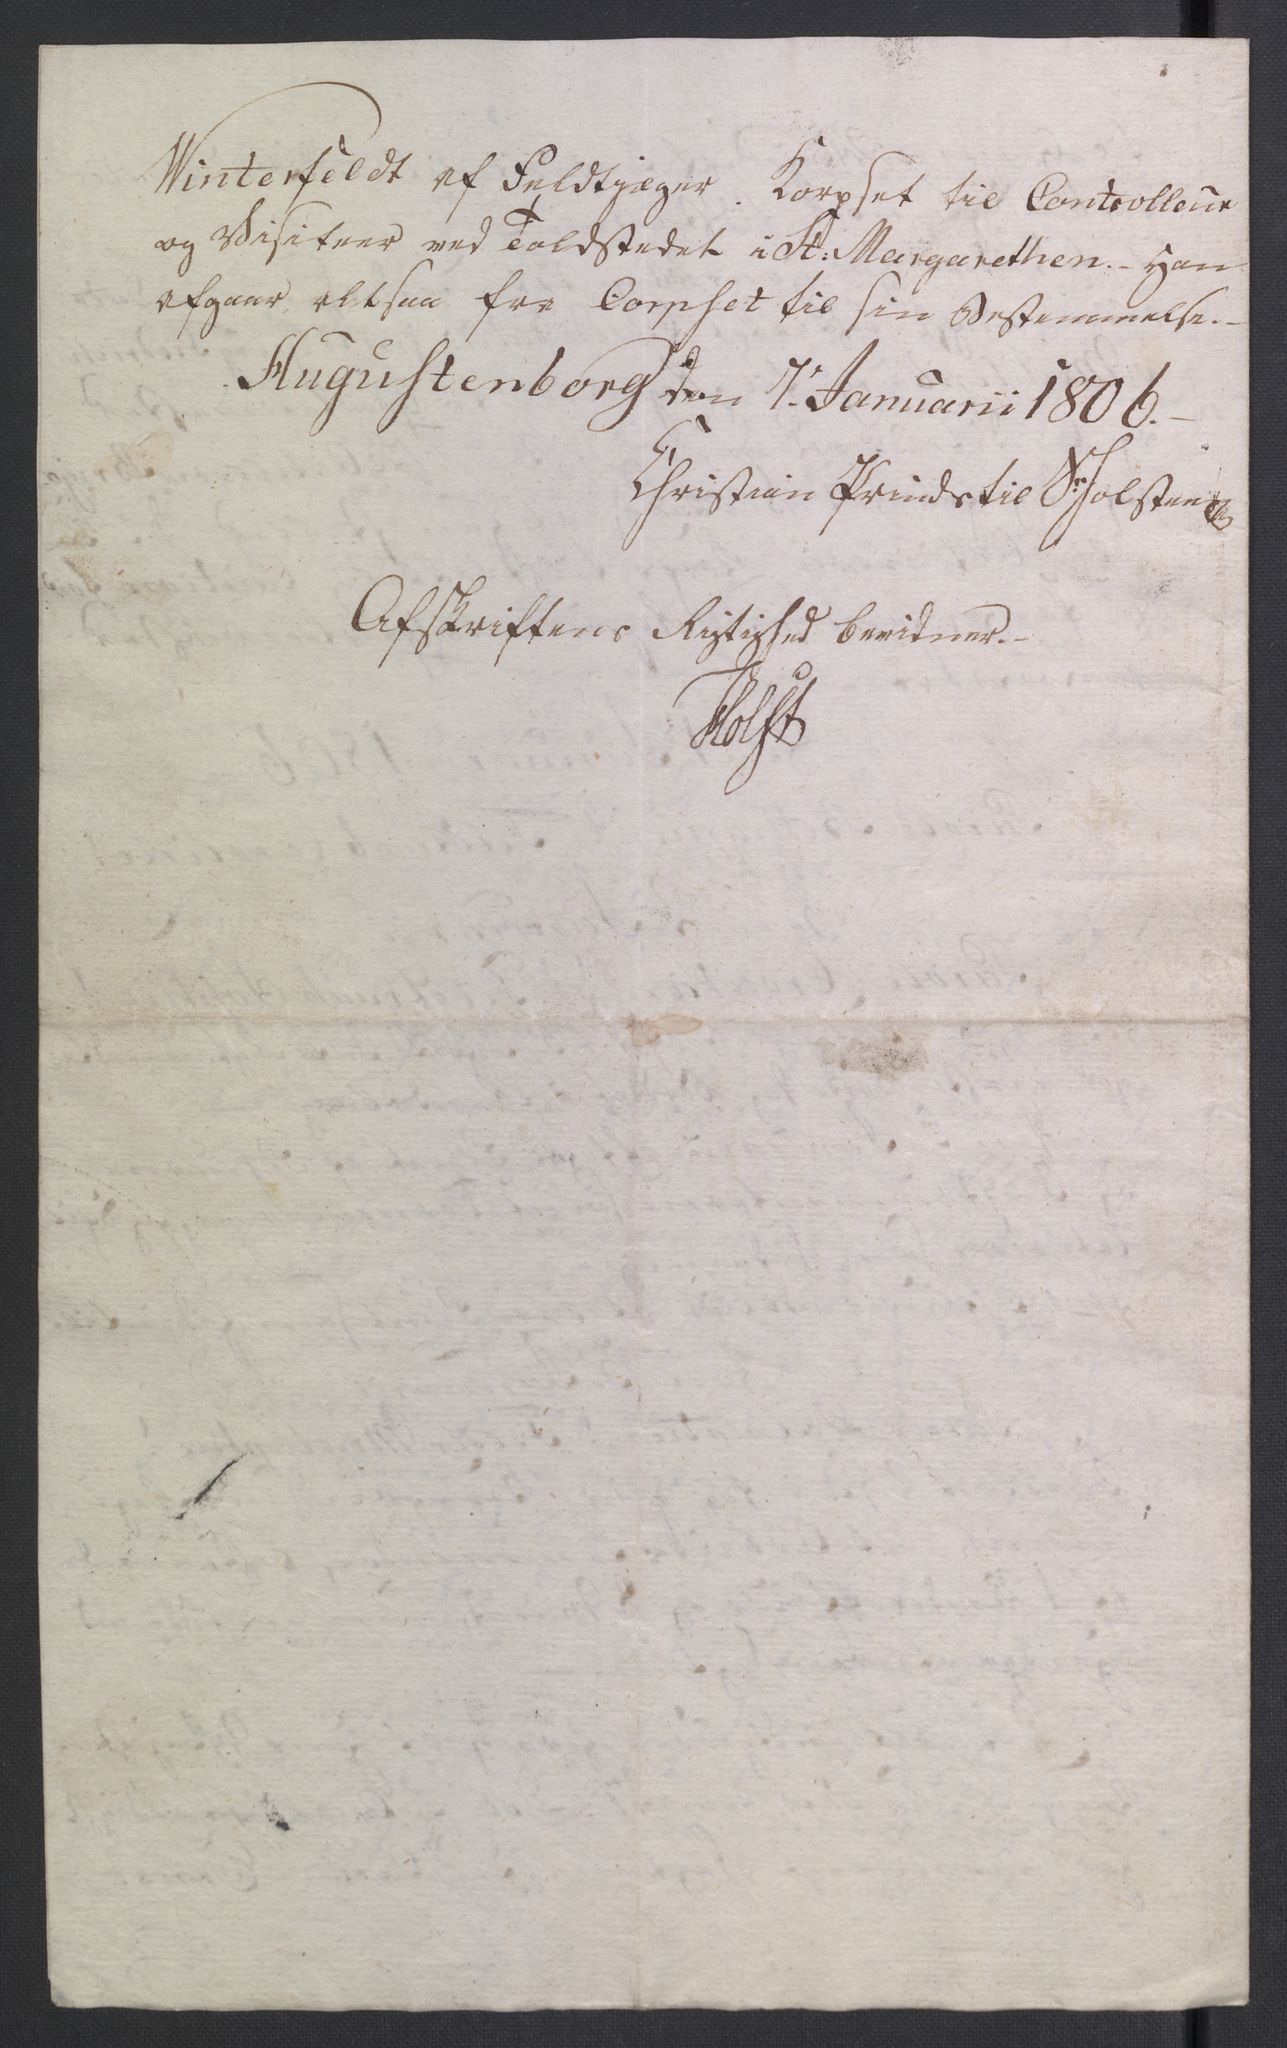 Winterfeldt af Feldtjæger Korpset til Controlleur
og Visiteur ved Toldstedet i St: Margarethen. – Han
afgaar altsaa fra Corpset til sin Bestemmelse. –
Augustenborg den 7. Januarii 1806. –
Christian Prinds til S. Holsteen
Afskriftens Rigtighed bevidner. –
Holst